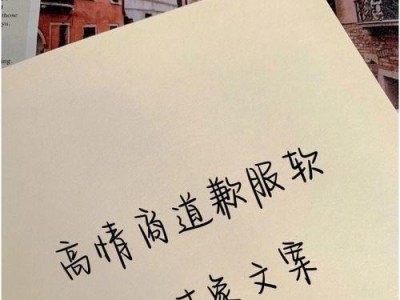 高情商道歉服软
象文案